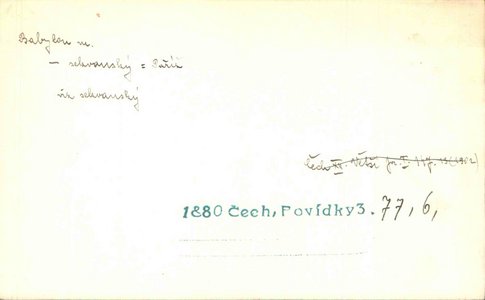 Babylon m.
— sekvanský = Paříž
viz sekvanský
Čech
1880 Čech, Povídky 3. 77, 6,